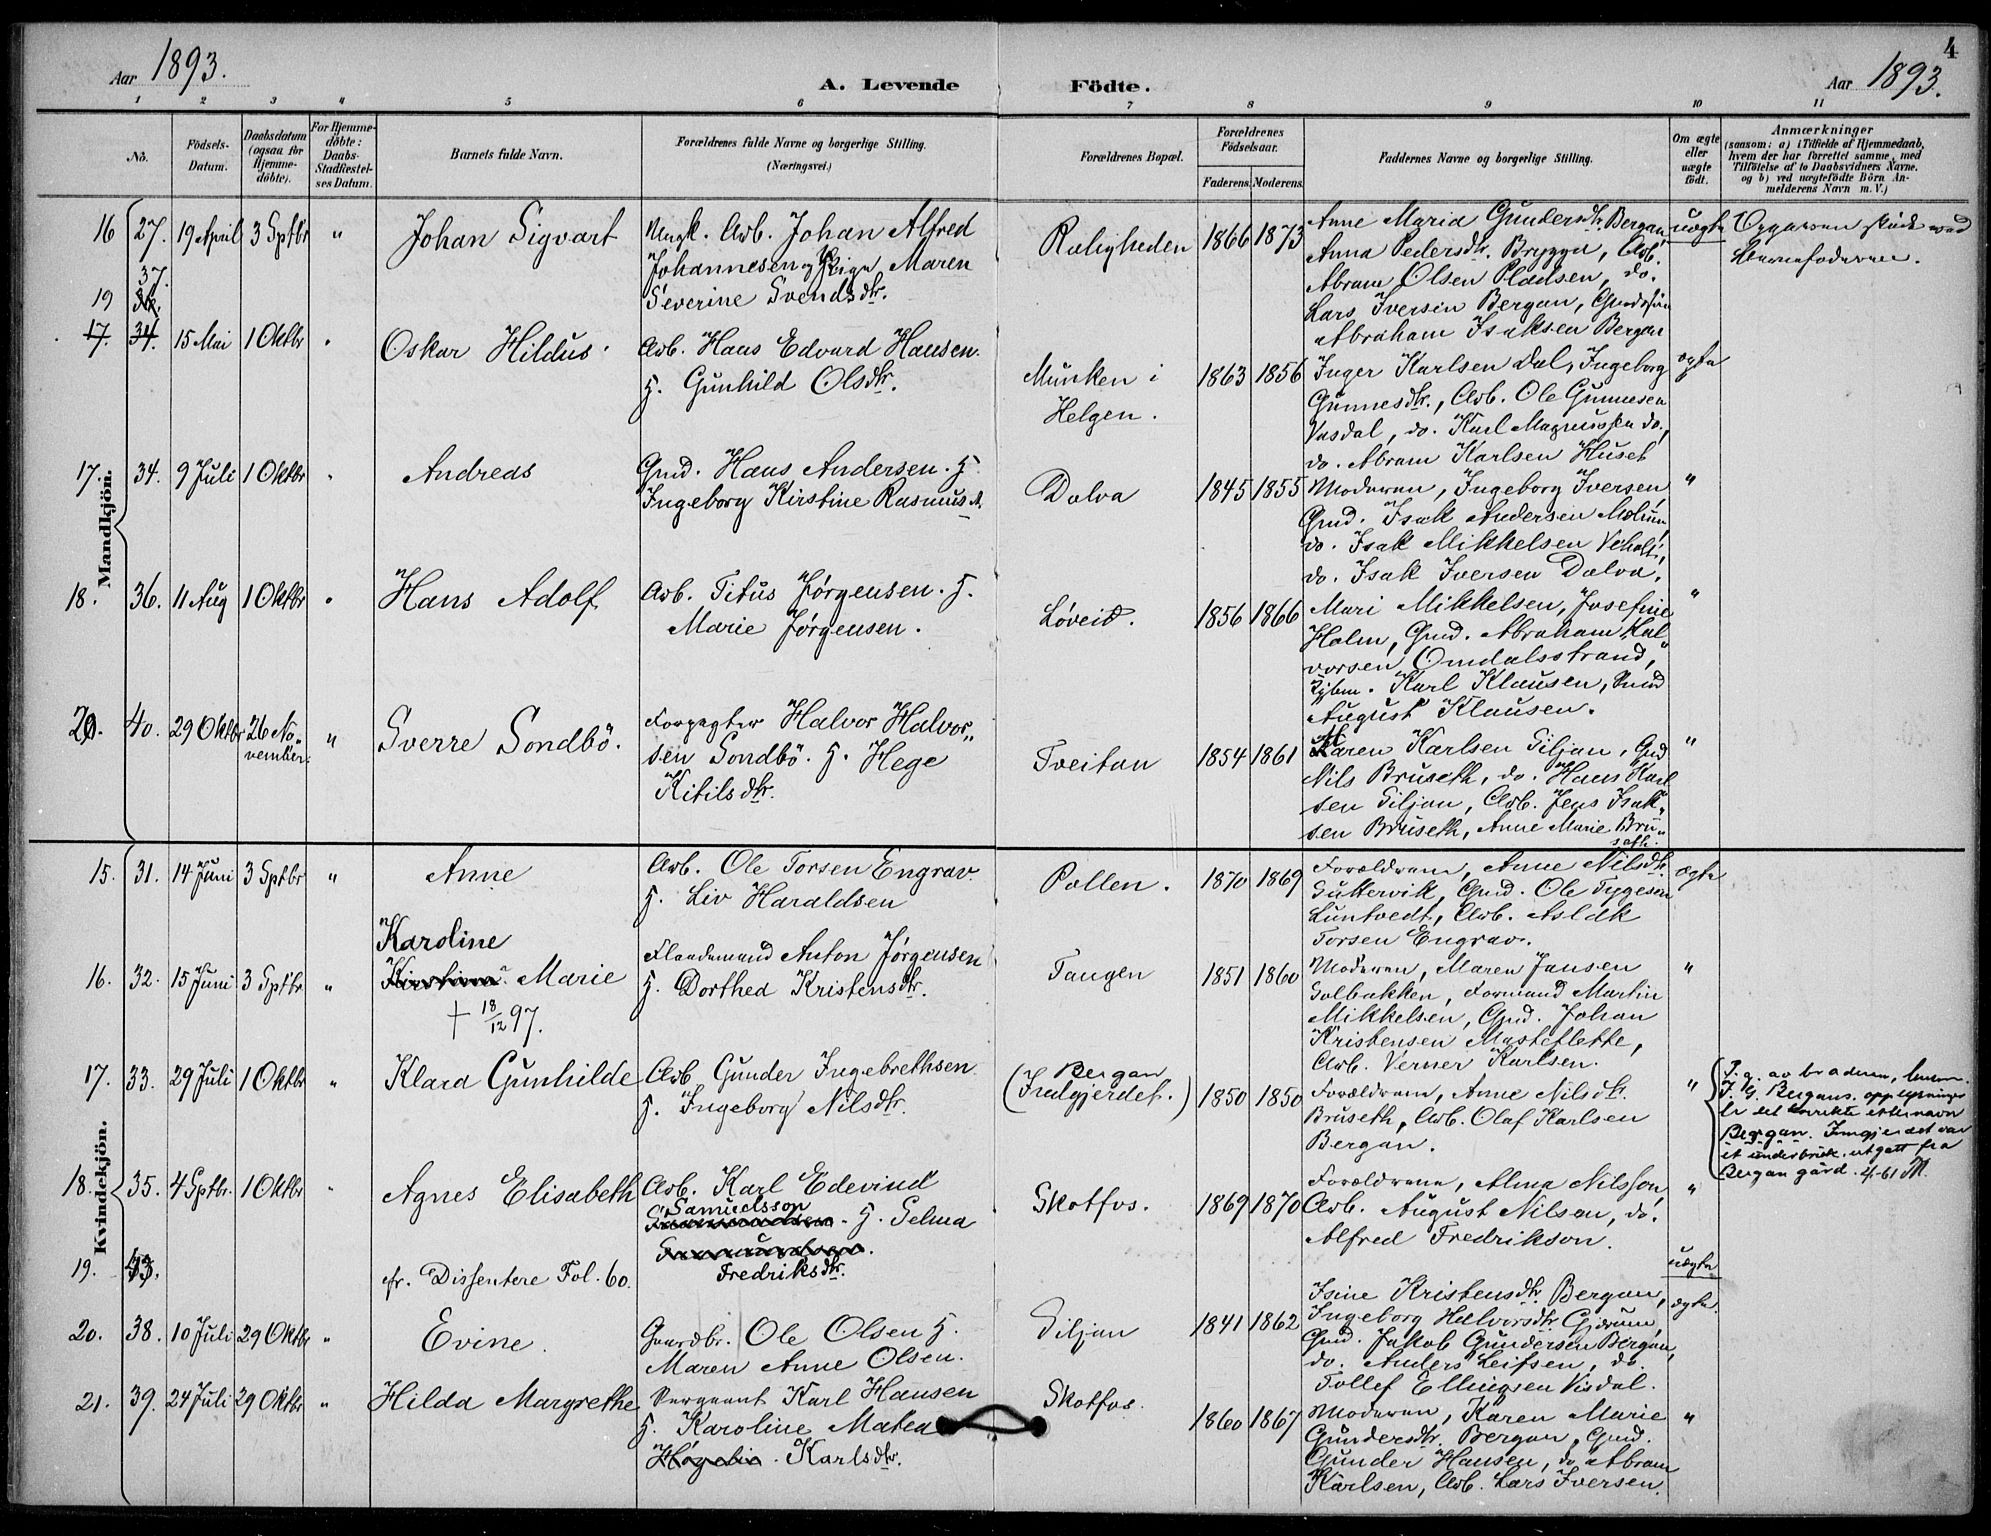 4
Aar 1893.
A. Levende Födte.
Aar 1893.
1 2 3 4 5 6 7 8 9 10 11
No.
Födsels-Datum.
Daabsdatum (ogsaa for Hjemme-döbte).
For Hjemme-döbte: Daabs-Stadfæstel-ses Datum.
Barnets fulde Navn.
Forældrenes fulde Navne og borgerlige Stilling. (Næringsvei.)
Forældrenes Bopæl.
Forældrenes Födselsaar.
Faderens. Moderens.
Faddernes Navne og borgerlige Stilling.
Om ægte eller uægte födt.
Anmærkninger
(saasom: a) i Tilfælde af Hjemmedaab, hvem der har forrettet samme, med Tilföielse af to Daabsvidners Navne. og b) ved uægtefödte Börn An-melderens Navn m. V.)
Mandkjön.
16 27. 19 April 3 Sptbr " Johan Sigvart
Ungk. Arb. Johan Alfred
Johannesen og Pige Maren
Severine Svendsdtr.
Røligheden 1866 1873
Anne Maria Gundersdtr. Bergan
Anna Pedersdtr. Bryggen, Arb.
Abram Olsen Pladsen, do.
Lars Iversen Bergan, Gmdssøn
Abraham Isaksen Bergan
uægte
Opgaven skede ved
Barnefaderen.
37.
19
17. 34. 15 Mai 1 Oktbr " Oskar Hildus.
Arb. Hans Edvard Hansen.
H. Gunhild Olsdtr.
Munken i
Helgen.
1863 1856
Inger Karlsen Dal, Ingeborg
Gunnesdtr., Arb. Ole Gunnesen
Vasdal, do. Karl Magnussen do.,
do. Abram Karlsen Huset
ægte
17. 34. 9 Juli 1 Oktbr " Andreas
Gmd. Hans Andersen. H.
Ingeborg Kirstine Rasmusdt.
Dolva 1845 1855
Moderen, Ingeborg Iversen,
Gmd. Isak Andersen Mælum,
do. Isak Mikkelsen Veholt,
do. Isak Iversen Dolva.
"
18. 36. 11 Aug 1 Oktbr " Hans Adolf
Arb. Titus Jørgensen. H.
Marie Jørgensen.
Løveid. 1856 1866
Mari Mikkelsen, Josefine
Holm, Gmd. Abraham Hal-
vorsen Omdalsstrand,
Kjbm. Karl Klausen, Smed
August Klausen.
"
20. 40. 29 Oktbr 26 No-
vember. " Sverre Sondbö.
Forpagter Halvor Halvor-
sen Sondbö. H. Hege
Kitilsdtr.
Tveitan 1854 1861
Maren Karlsen Giljan, Gmd
Nils Bruseth, do. Hans Karl
sen Giljan, Arb. Jens Isak-
sen Bruseth, Anne Marie Bru-
seth.
"
Kvindekjön.
15. 31. 14 Juni 3 Sptbr " Anne
Arb. Ole Torsen Engrav.
H. Liv Haraldsen
Pollen. 1870 1869
Forældrene, Anne Nilsdtr.
Guttervik, Gmd. Ole Tygesen
Luntvedt, Arb. Aslak
Torsen Engrav.
ægte
16. 32. 15 Juni 3 Sptbr "
Karoline
Kirstine Marie
† 18/12 97.
Flaademand Anton Jørgensen
H. Dorthea Kristensdtr.
Tangen 1851 1860
Moderen, Maren Jansen
Solbakken, Formand Martin
Mikkelsen, Gmd. Johan
Kristensen Masteflette,
Arb. Verner Karlsen.
"
17. 33. 29 Juli 1 Oktbr " Klara Gunhilde
Arb. Gunder Ingebrethsen.
H. Ingeborg Nilsdtr.
Bergan
(Indgjerdet.)
1850 1850
Forældrene, Anne Nilsdtr.
Bruseth, Arb. Olaf Karlsen
Bergan.
"
J. G. Bergans opplysninger
er det korrekte etternavn
Bergan. Inngjerdet var
et underbruk, utgått fra
Bergan gård. 4-61
18. 35. 4 Sptbr. 1 Oktbr " Agnes Elisabeth
Arb. Karl Edevind
Samuelsson
H. Selma
Fredriksdtr.
Skotfos. 1869 1870
Forældrene, Alma Nilsson,
Arb. August Nilsen, do.
Alfred Fredrikson.
"
19. 43.
fr. Dissentere Fol. 60.
uægte
20. 38. 10 Juli 29 Oktbr " Evine.
Gaardbr. Ole Olsen H.
Maren Anne Olsen.
Giljan 1841 1862
Isine Kristensdtr. Bergan,
Ingeborg Halvorsdtr. Gjerum,
Gmd. Jakob Gundersen Bergan,
do. Anders Leifsen, do.
Tollef Ellingsen Visdal.
ægte.
21. 39. 24 Juli 29 Oktbr " Hilda Margrethe
Sergeant Karl Hansen
H. Karoline Matea
Karlsdtr.
Skotfos. 1860 1867
Moderen, Karen Marie
Gundersdtr. Bergan, Gmd.
Gunder Hansen, do Abram
Karlsen, Arb. Lars Iversen.
"